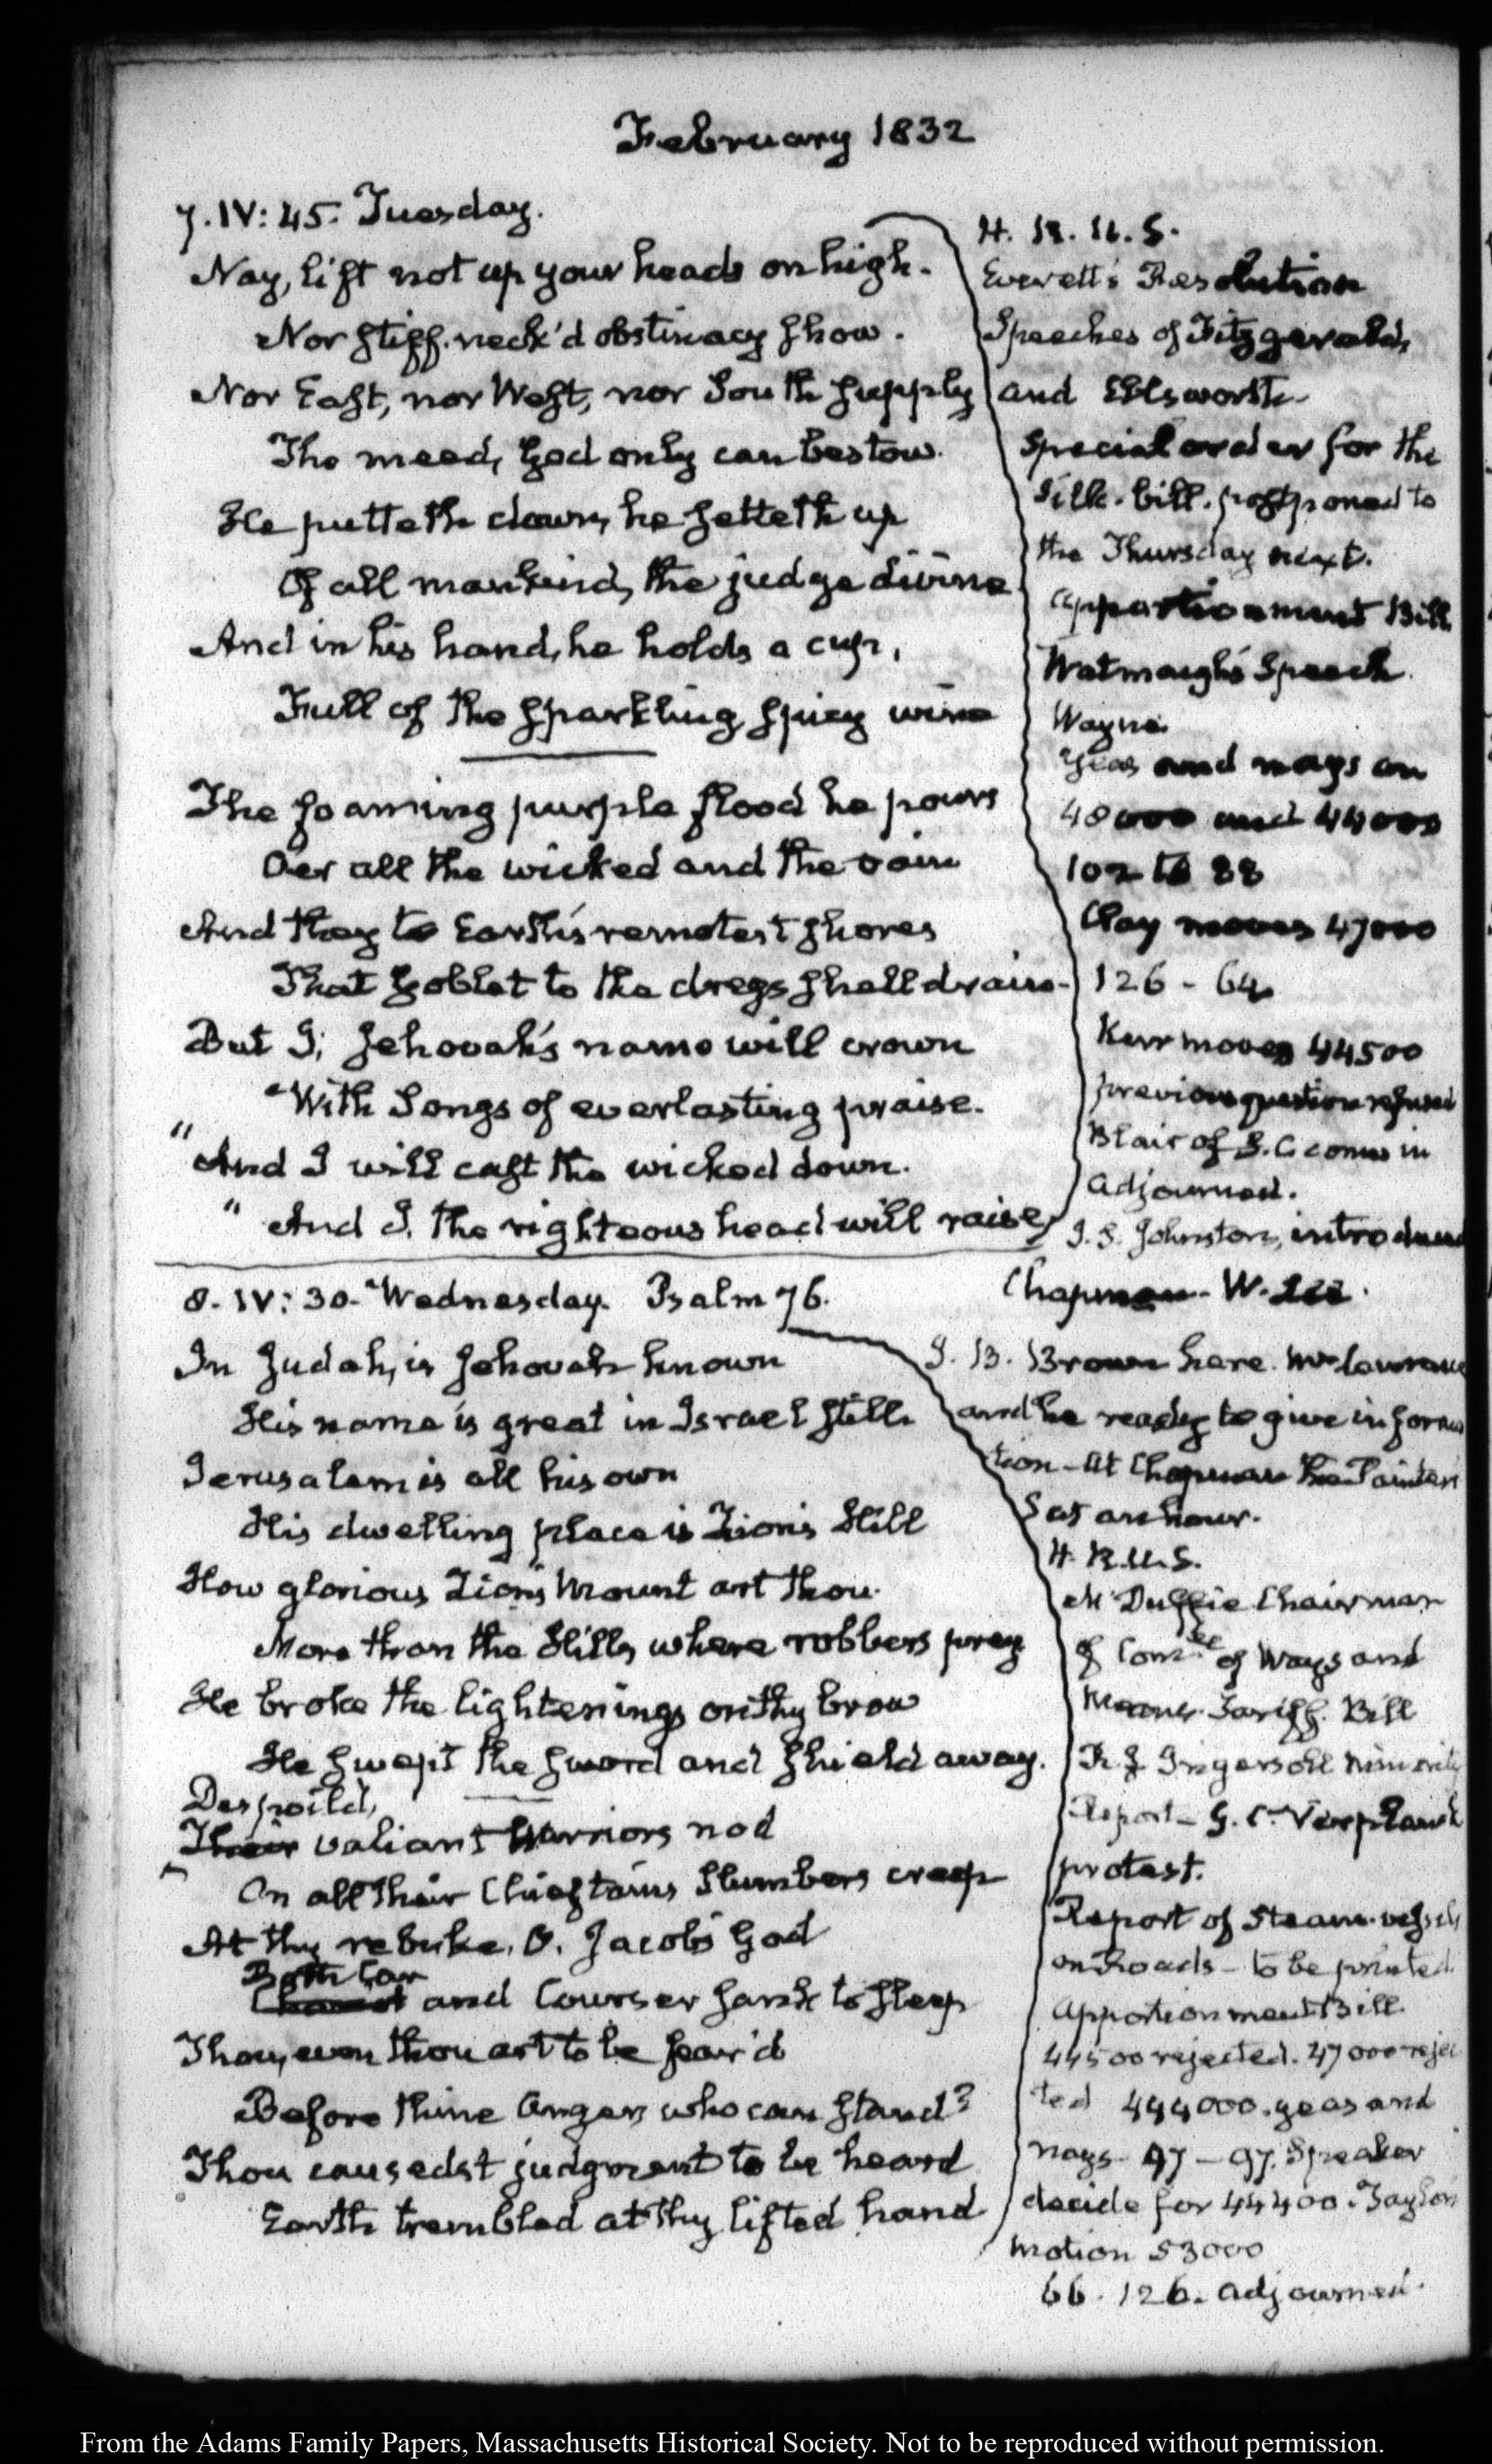 February 1832
7. IV: 45. Tuesday.
Nay, lift not up your heads on high.
Nor stiff-neck'd obstinacy show.
Nor East, nor West, nor South supply
The meed, God only can bestow.
He putteth down, he setteth up
Of all mankind, the judge divine
And in his hand, he holds a cup,
Full of the sparkling, spicy wine
The foaming purple flood he pours
O'er all the wicked and the vain
And they to Earth's remotest shores
That goblet to the dregs shall drain-
But I; Jehovah's name will crown
"With Songs of everlasting praise.
"And I will cast the wicked down.
" And I, the righteous head will raise
H. R. U. S.
Everett's Resolution
Speeches of Fitzgerald,
and Ellsworth-
Special order for the
Silk-bill. postponed to
the Thursday next.
Apportionment Bill
Watmough's Speech.
Wayne.
Yeas and nays on
48000 and 44000
102 to 88
Clay moves 47000
126 - 64
Kerr moves 44500
previous question refused
Blair of S. C comes in
Adjourned.
J. S. Johnston, introduced
Chapman- W. Lee.
8. IV: 30. Wednesday. Psalm 76.
In Judah, is Jehovah known
His name is great in Israel still
Jerusalem is all his own
His dwelling place is Zion's Hill
How glorious Zion's Mount art thou.
More than the Hills, where robbers prey
He broke the lightenings on thy brow
He swept the sword and shield away.
Despoil'd,
Their valiant Warriors nod
On all their Chieftains Slumbers creep
At thy rebuke, O, Jacob's God
Both Car
Chariot and Courser sank to sleep
Thou, even thou art to be fear'd
Before thine Anger, who can stand?
Thou causedst judgment to be heard
Earth trembled at thy lifted hand
J. B. Brown here. Mr Lawrence
and he ready to give informa
tion- At Chapman the Painters
Sat an hour.
H. R. U. S.
McDuffie Chairman
of Comtee of Ways and
Means. Tariff. Bill
R. J. Ingersoll minority
Report- G. C. Verplanck
protest.
Report of Steam-vessels
on Roads- to be printed.
Apportionment Bill.
44500 rejected. 47000 rejec
ted 444000. yeas and
nays 97 - 97. Speaker
decide for 44400. Taylor's
motion 53000
66. 126. Adjourned.
From the Adams Family Papers, Massachusetts Historical Society. Not to be reproduced without permission.